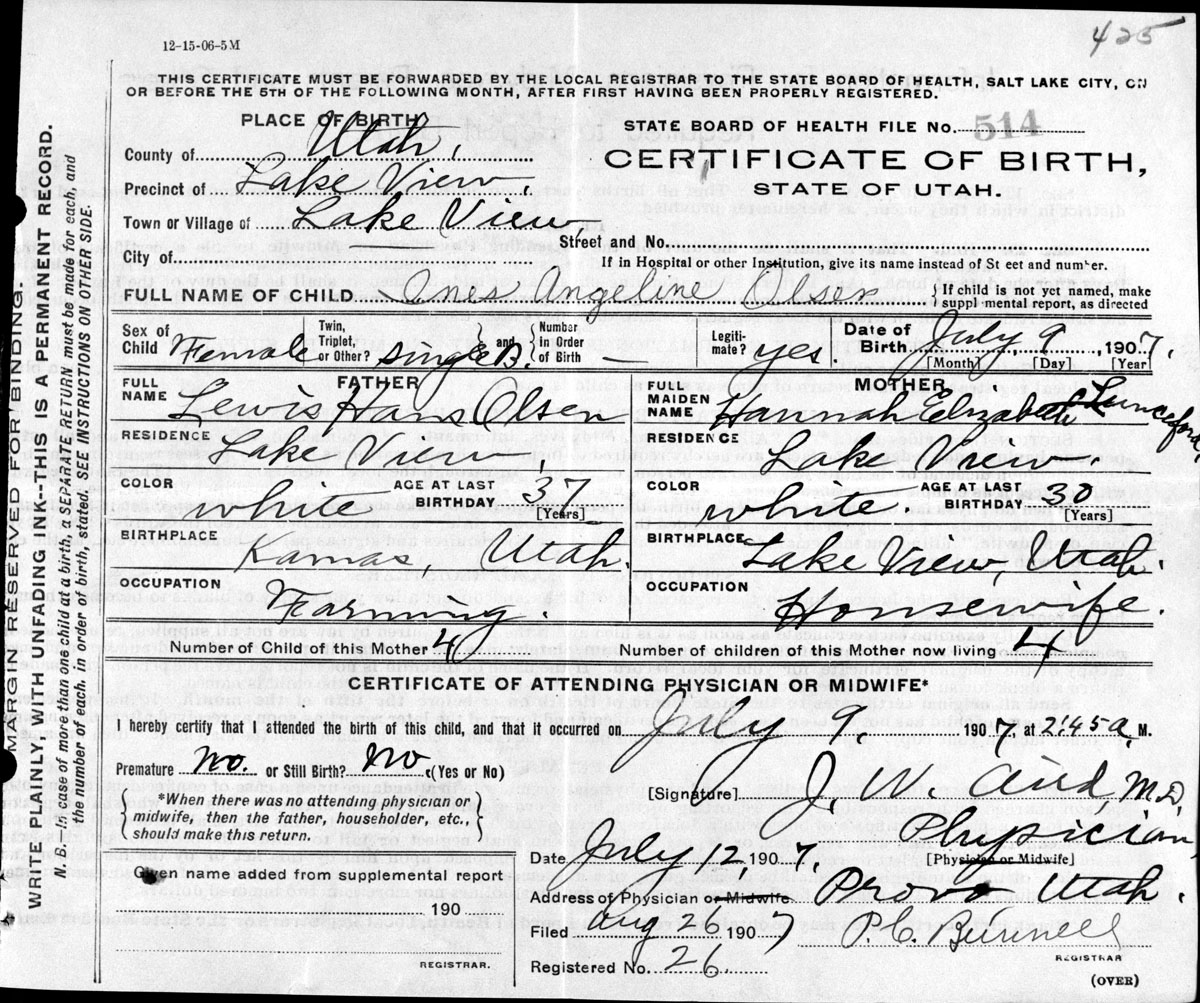 425
12-15-06-5M
THIS CERTIFICATE MUST BE FORWARDED BY THE LOCAL REGISTRAR TO THE STATE BOARD OF HEALTH, SALT LAKE CITY, ON
OR BEFORE THE 5TH OF THE FOLLOWING MONTH, AFTER FIRST HAVING BEEN PROPERLY REGISTERED.
PLACE OF BIRTH
County of Utah,
Precinct of Lake View,
Town or Village of Lake View
City of
STATE BOARD OF HEALTH FILE No. 514
CERTIFICATE OF BIRTH,
STATE OF UTAH.
Street and No.
If in Hospital or other Institution, give its name instead of St eet and number.
FULL NAME OF CHILD Ones Angeline Olsen { If child is not yet named, make
suppl mental report, as directed
Sex of Child Female Twin, Triplet, or Other? single B. and Number in Order of Birth — Legiti- mate? yes. Date of Birth July 9, 1907.
[Month] [Day] [Year
FATHER
FULL NAME Lewis Hans Olsen
RESIDENCE
Lake View,
COLOR white AGE AT LAST BIRTHDAY 37
[Years]
BIRTHPLACE
Kamas, Utah.
OCCUPATION
Farming.
MOTHER
FULL MAIDEN NAME Hannah Elizabeth Lunceford,
RESIDENCE
Lake View
COLOR white. AGE AT LAST BIRTHDAY 30
[Years]
BIRTHPLACE
Lake View, Utah.
OCCUPATION
Housewife.
Number of Child of this Mother 4
Number of children of this Mother now living 4
CERTIFICATE OF ATTENDING PHYSICIAN OR MIDWIFE*
I hereby certify that I attended the birth of this child, and that it occurred on July 9, 1907, at 2:45 a, M.
Premature no. or Still Birth? no. (Yes or No)
*When there was no attending physician or
midwife, then the father, householder, etc.,
should make this return.
[Signature] J. W. Aird M.D,
Physician,
[Physician or Midwife]
Date July 12 1907,
Address of Physician or Midwife Provo Utah.
Filed Aug 26 1907
P. C. Bunnell
REGISTRAR
Registered No. 26
(OVER)
Given name added from supplemental report
190
REGISTRAR.
MARGIN RESERVED FOR BINDING.
WRITE PLAINLY, WITH UNFADING INK--THIS IS A PERMANENT RECORD.
N. B.—In case of more than one child at a birth, a SEPARATE RETURN must be made for each, and
the number of each, in order of birth, stated. SEE INSTRUCTIONS ON OTHER SIDE.